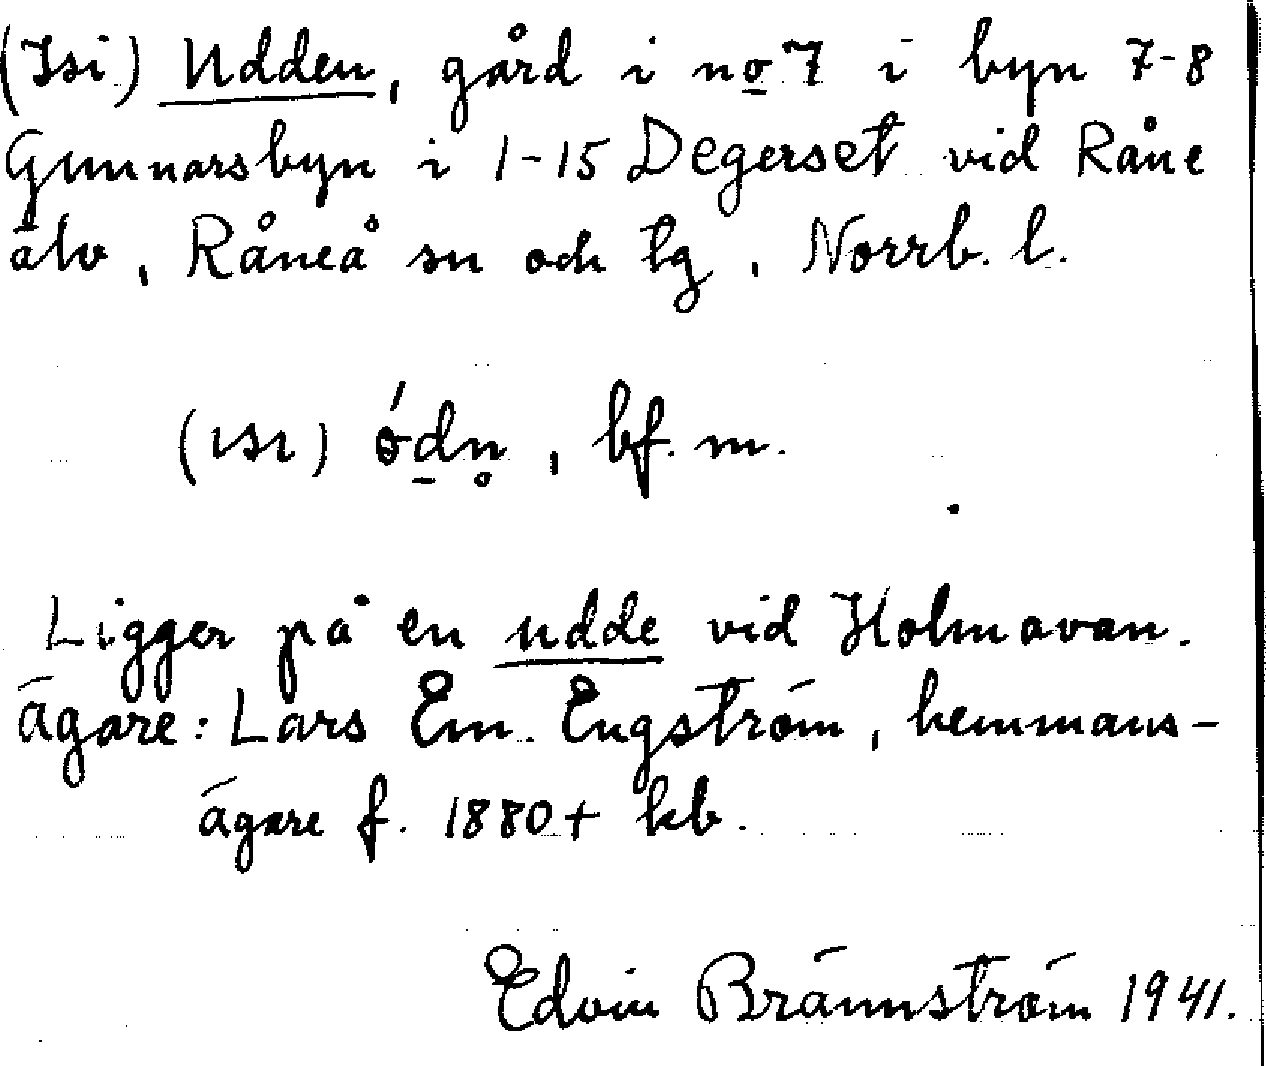 (Isi) Udden, gård i no 7 i byn 7-8
Gunnarsbyn i 1-15 Degerset vid Råne
älv, Råneå sn och tg, Norrb. l.
(ısı) ó̱dn̥, bf. m.
Ligger på en udde vid Holmavan.
Ägare: Lars Em. Engström, hemmans-
ägare f. 1880 + kb.
Edvin Brännström 1941.